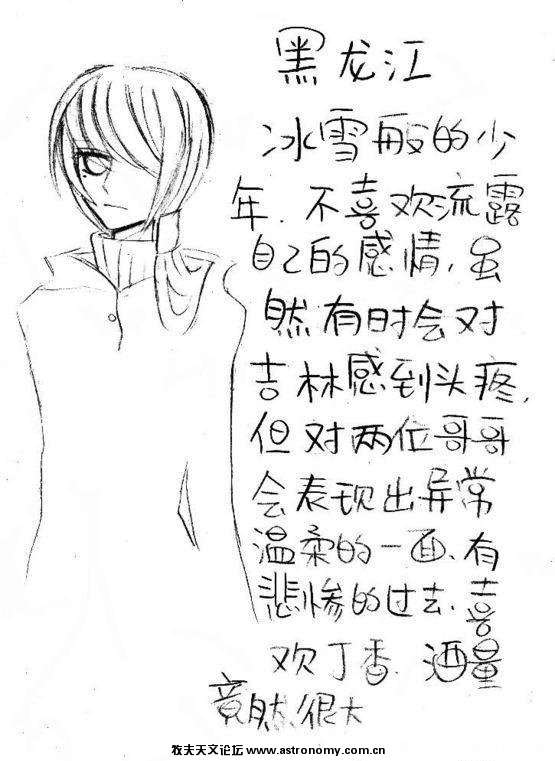 黑龙江
冰雪般的少
年.不喜欢流露
自己的感情,虽
然有时会对
吉林感到头疼,
但对两位哥哥
会表现出异常
温柔的一面、有
悲惨的过去.喜
欢丁香.酒量
竟然很大
牧夫天文论坛 www.astronomy.com.cn